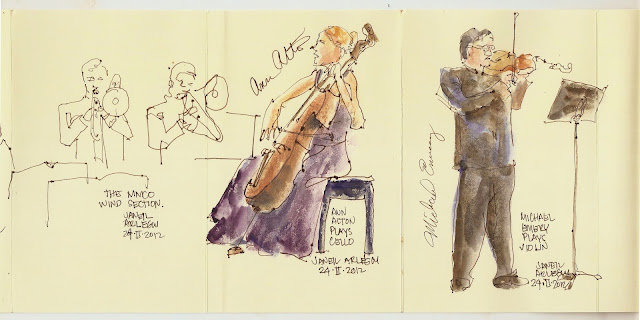 THE MNCO
WIND SECTION.
JANEIL
ARLEGUI
24·II·2012
Ann Acton
ANN
ACTON
PLAYS
CELLO
JANEIL ARLEGUI
24·II·2012
Michael Emery
MICHAEL
EMERY
PLAYS
VIOLIN
JANEIL
ARLEGUI
24·II·2012